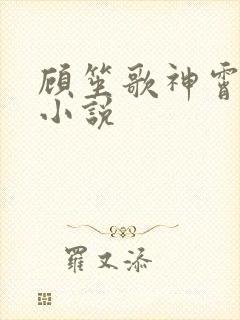 顾笙歌神霄
小說
羅又添